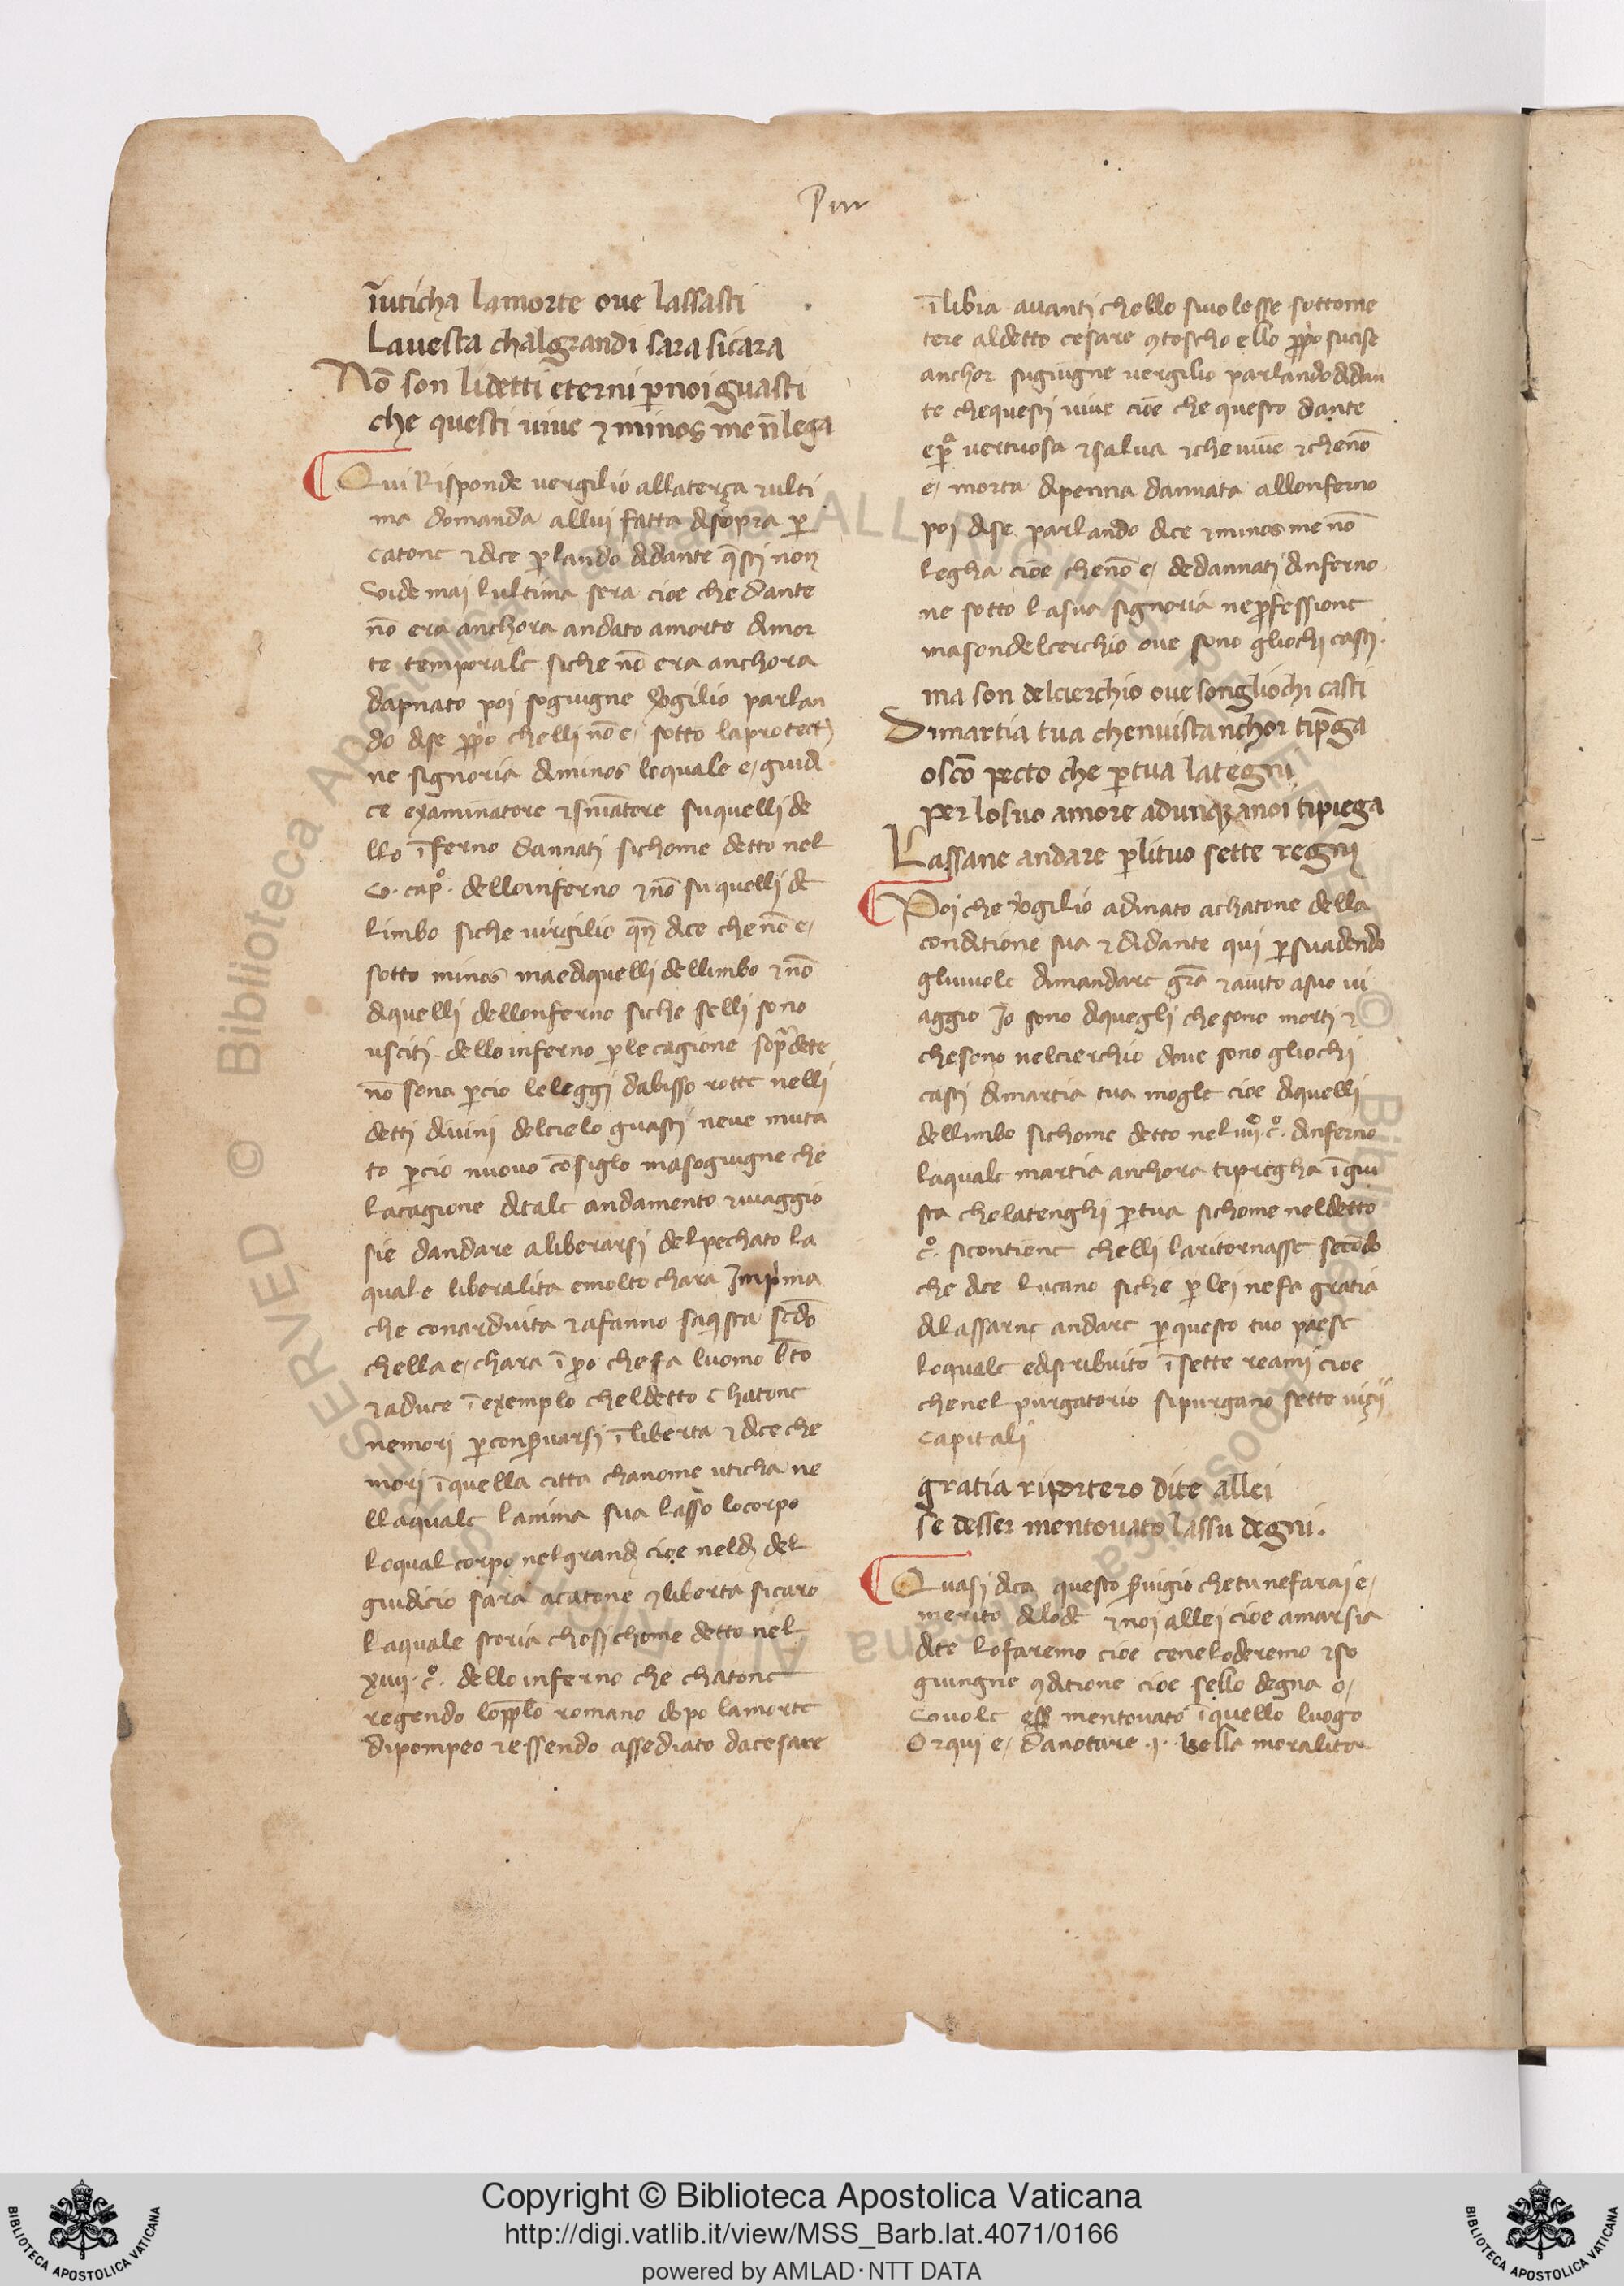 Pur
īuticha lamorte oue lassasti
Lauesta chalgrandi sara sicara
Nō son lidetti eterni p̲noi guasti
che questi uiue ⁊ minos me n̄ lega
Qui Risponde uergilio allaterça ⁊ulti
ma domanda allui fatta disopra p̲
catone ⁊ dice p̲lando didante q̄sti non
Vide mai lultima sera cioe che dante
nō era anchora andato amorte dimor
te temporale siche nō era anchora
dapnato poi sogiugne V̓gilio parlan
do dise pp̲o chelli nō e, sotto laprotecti
ne signoria diminos loquale e, giudi
ce examinatore ⁊ sn̄iatore suquelli de
llo īferno dannati sichome detto nel
v. cap̊. delloinferno ⁊ nō suquelli de
limbo siche uirgilio qn̄ dice che nō e,
sotto minos maediquelli dellimbo ⁊ nō
diquelli dellonferno siche selli sono
usciti dello inferno p̲le cagione sop̄dete
nō sono p̲cio leleggi dabisso rotte nelli
detti diuini delcielo guasti neue muta
to p̲cio nuouo cōsiglo masogiugne che
lacagione ditale andamento ⁊uiaggio
sie dandare aliberarsi delpechato la
quale liberalita emolto chara Imp̓ma
che conarduita ⁊afanno saq̓sta sc̄do
chella e, chara ī p̲o chefa luomo b̄to
⁊aduce ī exemplo cheldetto Chatone
nemori p̲conseruarsi īliberta ⁊ dice che
mori īquella citta chanome uticha ne
llaquale lanima sua lasso locorpo
loqual corpo nelgrandi cioe neldi del
giudicio sara acatone ꝯliberta sicaro
laquale storia chosi chome detto nel
xiiij. c̊. dello inferno che chatone
regendo lopp̄lo romano dopo lamorte
dipompeo ⁊essendo assediato dacesare
īlibia auanti chello siuolesse sottome
tere aldetto cesare ꝯtoscho ello pp̲o sucise
anchor sugiugne uergilio parlando didan
te chequesti uiue cioe che questo dante
e p̲ā uertuosa ⁊salua ⁊che uiue ⁊chenō
e, morta dipenna dannata allonferno
poi dise parlando dice ⁊minos me nō
legha cioe chenō e, dedannati dinferno
ne sotto lasua signoria ne p̲fessione
masondelcerchio oue sono gliochi casti.
ma son delcierchio oue songliochi casti
Dimartia tua chenuista nchor tip̄ga
o scō pecto che p̲tua lategni
per losuo amore adunqꝫ anoi tipiega
Lassane andare p̲lituo sette regni
Poi che V̓gilio adinato achatone della
conditione sua ⁊ didante qui p̲suadendo
gliuuole dimandare gr̄a ⁊aiuto asuo ui
aggio Io sono diquegli chesono morti ⁊
chesono nelcierchio doue sono gliochi
casti dimartia tua mogle cioe diquelli
dellimbo sichome detto nel iiij̊. c̊. dinferno
laquale martia anchora tipregha īgui
sta chelatenghi p̲tua sichome neldetto
c̊. sicontiene chelli laritornasse secōdo
che dice lucano siche p̲lei nefa gratia
dilassarne andare p̲questo tuo paese
loquale edistribuito īsette reami cioe
chenel purgatorio sipurgano sette uiçij
capitali
gratia riportero dite allei
se desser mentouato lassu degni.
Quasi dica questo s̲uigio chetu nefarai e,
merito dilode ⁊noi allei cioe amarsia
dite lofaremo cioe ceneloderemo ⁊so
giungne ꝯditione cioe sello degna o,
Vuole ess̄ mentouato īquello luogo
Orqui e, danotare .i. bella moralita
Copyright © Biblioteca Apostolica Vaticana
http://digi.vatlib.it/view/MSS_Barb.lat.4071/0166
powered by AMLAD·NTT DATA
BIBLIOTECA APOSTOLICA VATICANA
BIBLIOTECA APOSTOLICA VATICANA